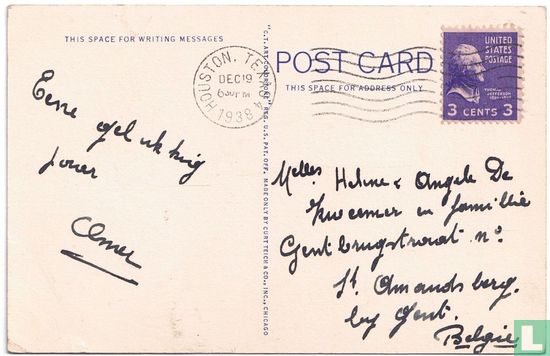 THIS SPACE FOR WRITING MESSAGES
Eene gelukkig
jaar
Omer
"C.T. ART-COLORTONE" REG. U.S. PAT. OFF. MADE ONLY BY CURT TEICH & CO., INC., CHICAGO
HOUSTON, TEX.
DEC 19
6 30 PM
1938
POST CARD
THIS SPACE FOR ADDRESS ONLY
UNITED
STATES
POSTAGE
THOMAS
JEFFERSON
3 CENTS 3
Melles Helene & Angele De
en familie
Gentbrugstraat no
St. Amandsberg.
by Gent.
Belgie